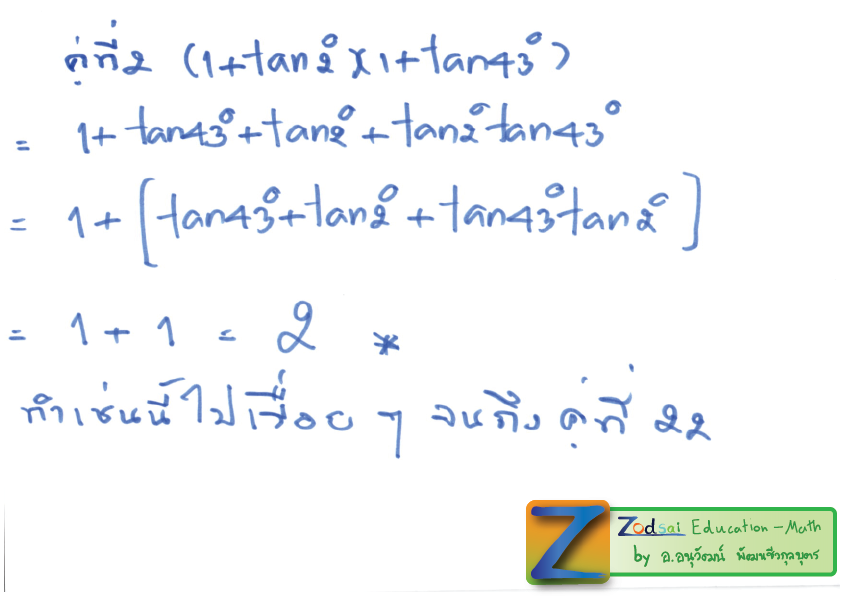 คู่ที่2 (1+tan2°)(1+tan43°)
= 1+tan43°+tan2°+tan2°tan43°
= 1+[tan43°+tan2°+tan43°tan2°]
= 1+1 = 2 *
ทำเช่นนี้ไปเรื่อย ๆ จนถึง คู่ที่ 22
Z Zodsai Education-Math
by อ.อนุวัฒน์ พัฒนชีวกุลบุตร